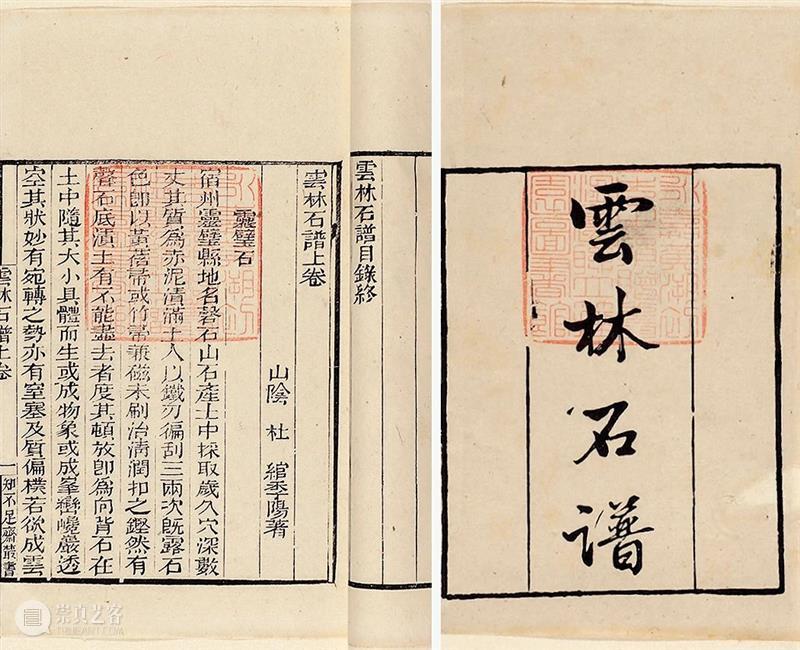 雲林石譜
雲林石譜目錄終
雲林石譜上卷
山陰 杜 綰季陽著
靈璧石
宿州靈璧縣地名磬石山石產土中採取歲久穴深數
丈其質為赤泥漬滿土人以鐵刃徧刮三兩次既露石
色即以黃蓓帚或竹帚兼磁末刷治清潤扣之鏗然有
聲石底漬土有不能盡去者度其頓放即為向背石在
土中隨其大小具體而生或成物象或成峯巒巉巖透
空其狀妙有宛轉之勢亦有窒塞及質偏樸若欲成雲
雲林石譜上卷
一
知不足齋叢書
崇真艺客